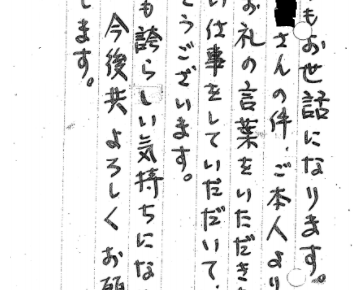 もお世話になります。
さんの件、ご本人より
お礼の言葉をいただき
い仕事をしていただいて、
うございます。
も誇らしい気持ちにな
今後共よろしくお願
します。